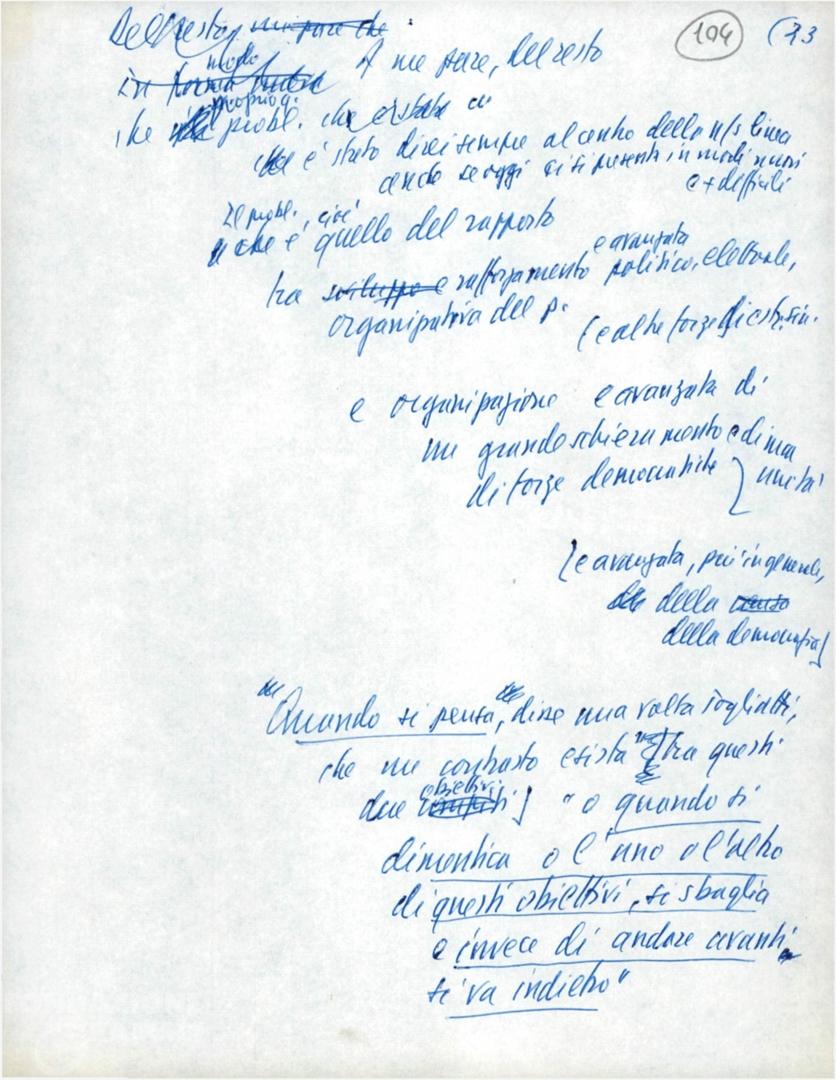 Del resto, mi pare che
104 (33
A me pare, del resto
modo
in forma
che probl. che è stato
è stato direi sempre al centro della n/s linea
anche se oggi ci si presenta in modi nuovi
e + difficili
Il probl., cioè
che è quello del rapporto
e avanzata
tra sviluppo e rafforzamento politico, elettorale,
organizzativa del p.
(e altre forze di est. sin.
e organizzazione e avanzata di
un grande schieramento e di una
di forze democratiche } unità
[e avanzata, più in generale,
della
della democrazia]
"Quando si pensa, disse una volta Togliatti,
che un contrasto esista tra questi
obiettivi
due compiti] "o quando si
dimentica o l'uno o l'altro
di questi obiettivi, si sbaglia
e invece di andare avanti
si va indietro"